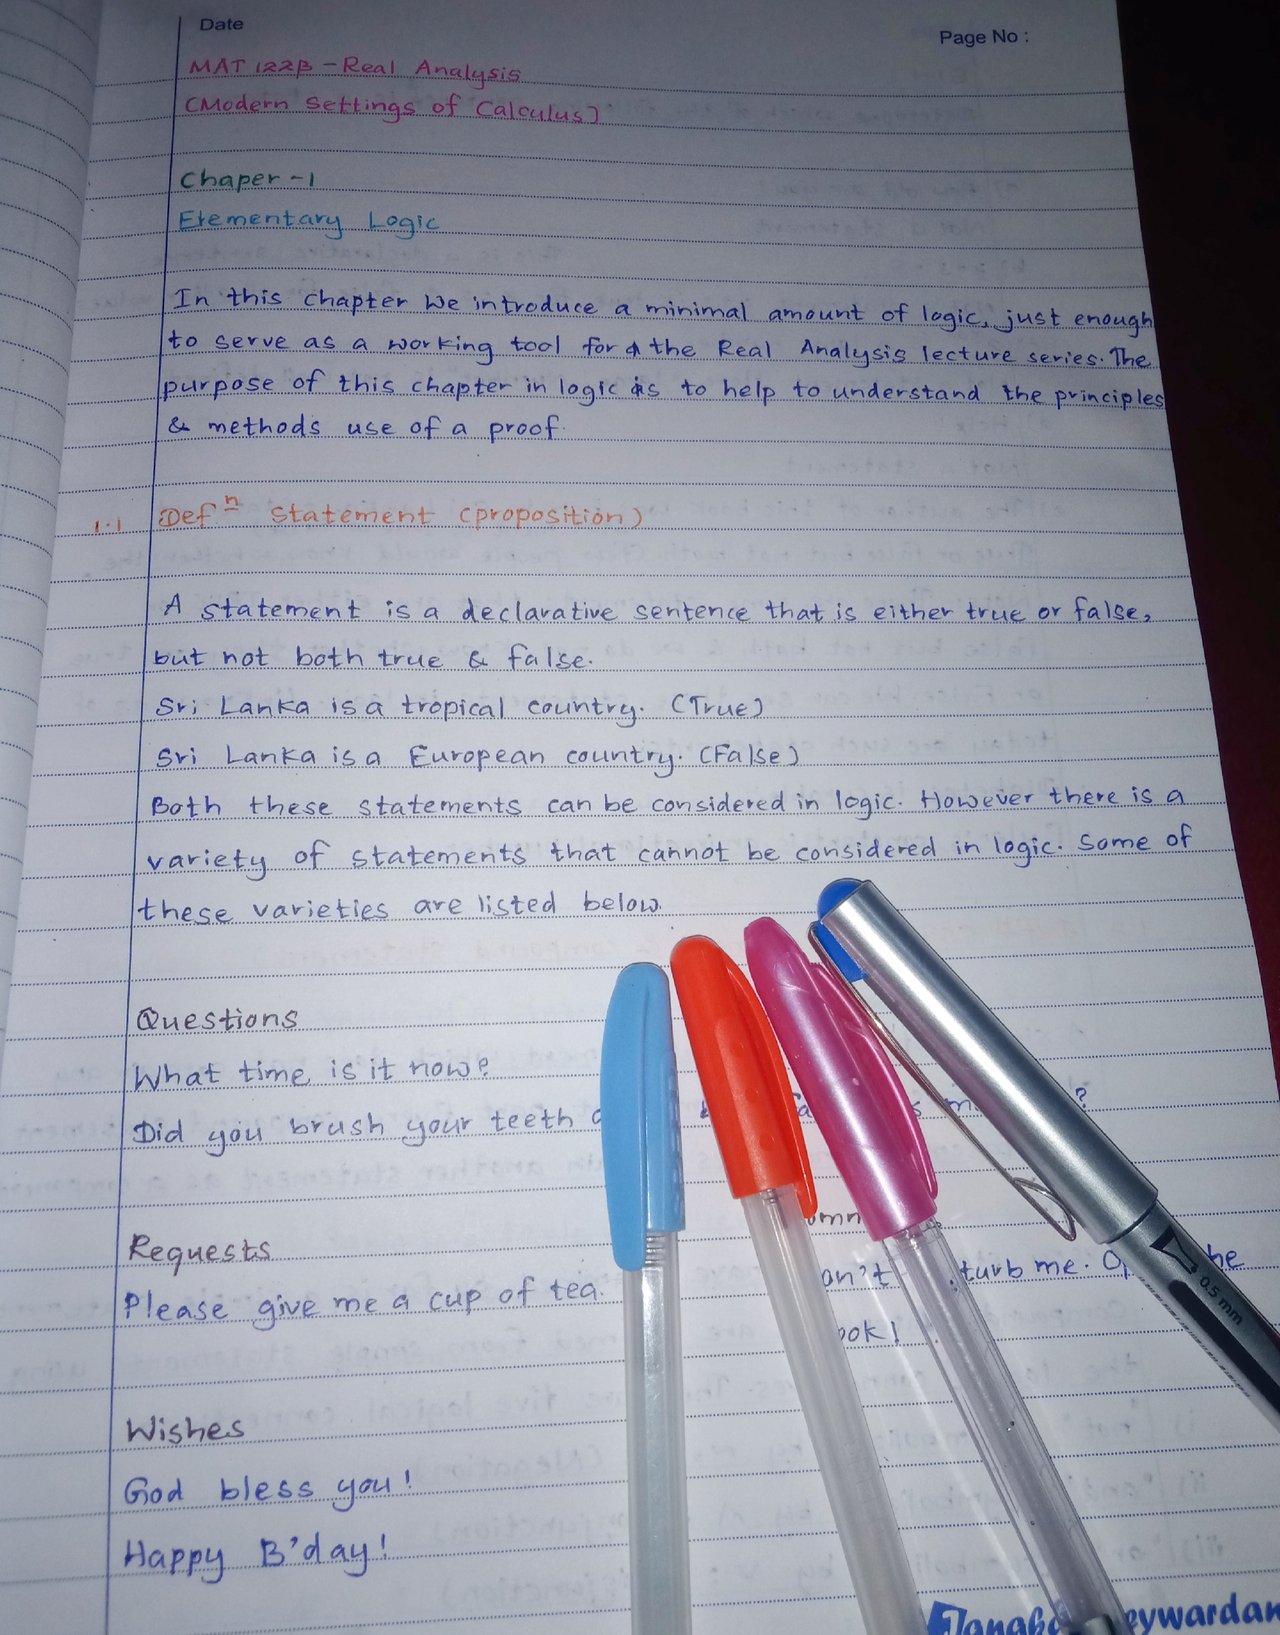 Date
Page No :
MAT 122β - Real Analysis
(Modern Settings of Calculus)
Chaper - 1
Elementary Logic
In this chapter we introduce a minimal amount of logic, just enough
to serve as a working tool for the Real Analysis lecture series. The
purpose of this chapter in logic is to help to understand the principles
& methods use of a proof.
1.1 Defⁿ Statement (proposition)
A statement is a declarative sentence that is either true or false,
but not both true & false.
Sri Lanka is a tropical country. (True)
Sri Lanka is a European country. (False)
Both these statements can be considered in logic. However there is a
variety of statements that cannot be considered in logic. Some of
these varieties are listed below.
Questions
What time is it now?
Did you brush your teeth
Requests
Please give me a cup of tea.
turb me.
Wishes
God bless you!
Happy B'day!
0.5 mm